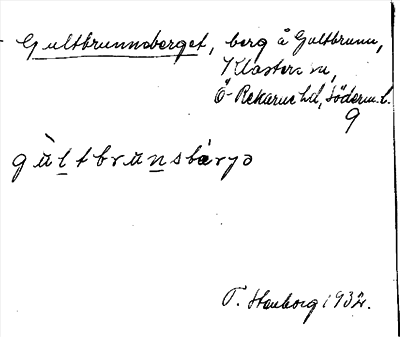 Gultbrunnsberget, berg å Gultbrunn,
Klosters sn,
Ö-Rekarne hd, Söderm. l.
9
gu̇̀ltbrunsbärjə
T. Hanborg 1932.